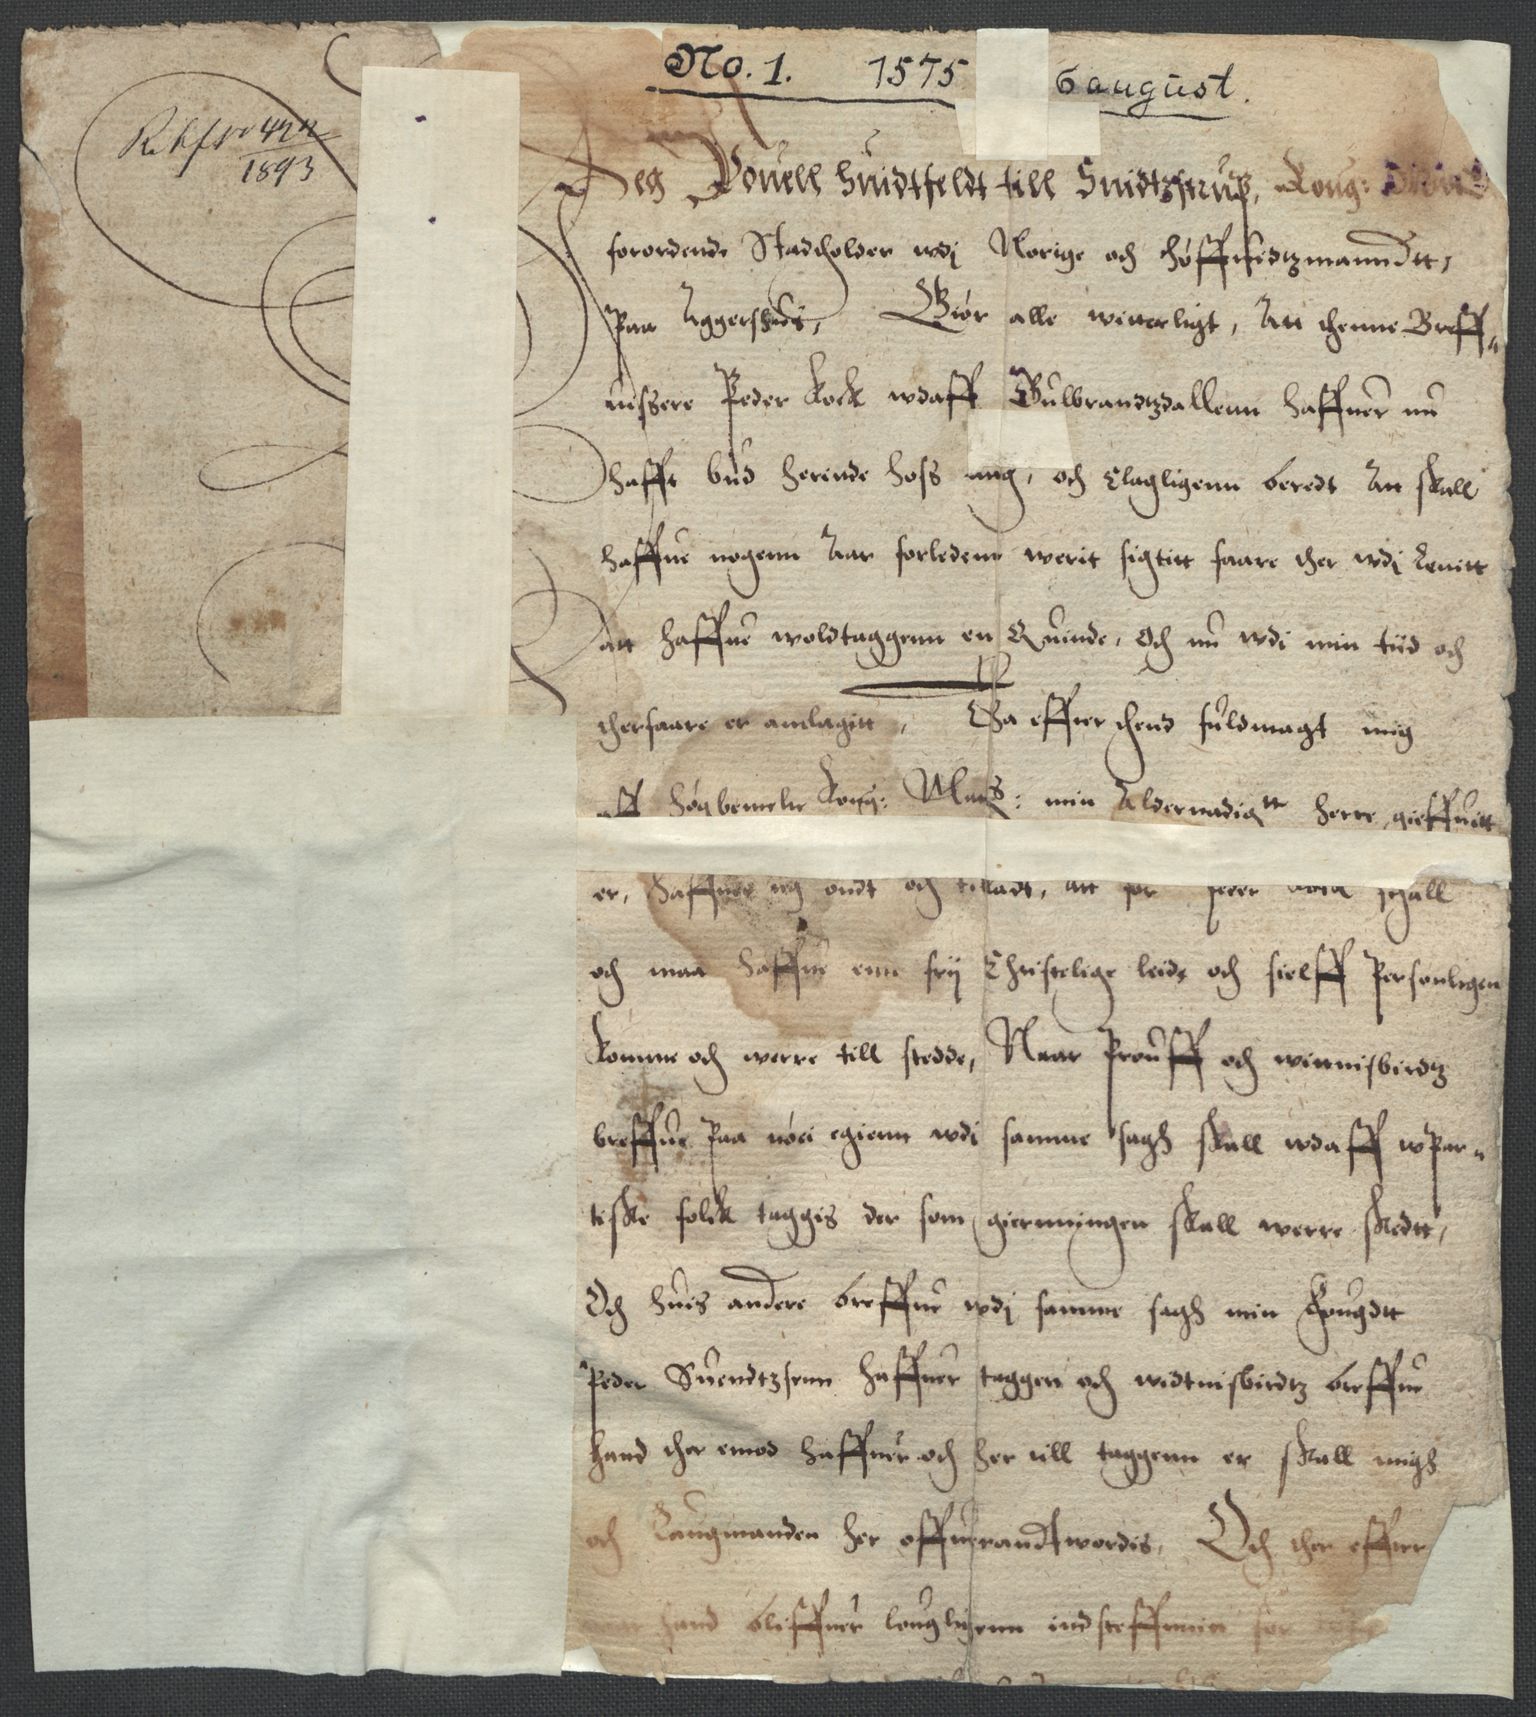 No. 1. 1575 6 august.
1893
Jeg Pouell Huidtfeldt till Huidtzstrup, Kong:
forordende Stadholder wdj Norige och Höffuedtzmanndt,
Paa Aggershuds, Giör alle witterligt, Att thenne Breff„
uissere Peder Kock wdaff Gulbrandtzdallenn haffuer nu
hafft bud herinde hoss mig, och Clagligenn beredt Att skall
haffue nogenn Aar forledenn werit sigtitt faare ther wdj Lenitt
att haffue woldtaggenn en Quinde, Och nu wdi min tiid och
therfaare er anclagitt, Tha effter thend fuldmagt mig
aff högbemelte Kong: Matts: min Aldernadigtt herre gieffuitt
er, haffuer ieg undt och tilladt, att for Peder Kock schall
och maa haffue enn frij Christelige leide och sielff Personligen
komme och werre till stedde, Naar Prouff och wittnisbirdtz
breffue Paa nöei egienn wdj samme sagh skall wdaff wPar„
tiske folck taggis der som gierningen skall werre skedtt,
Och huis andere breffue wdj samme sagh min Fougdtt
Peder Suendtzsenn haffuer taggen och widtnisbirdtz breffue
hand ther emod haffuer och her till taggenn er skall migh
och Laugmanden her offuerandtwordis, Och ther effter
naar hand bliffuer louglighenn indsteffnnit for